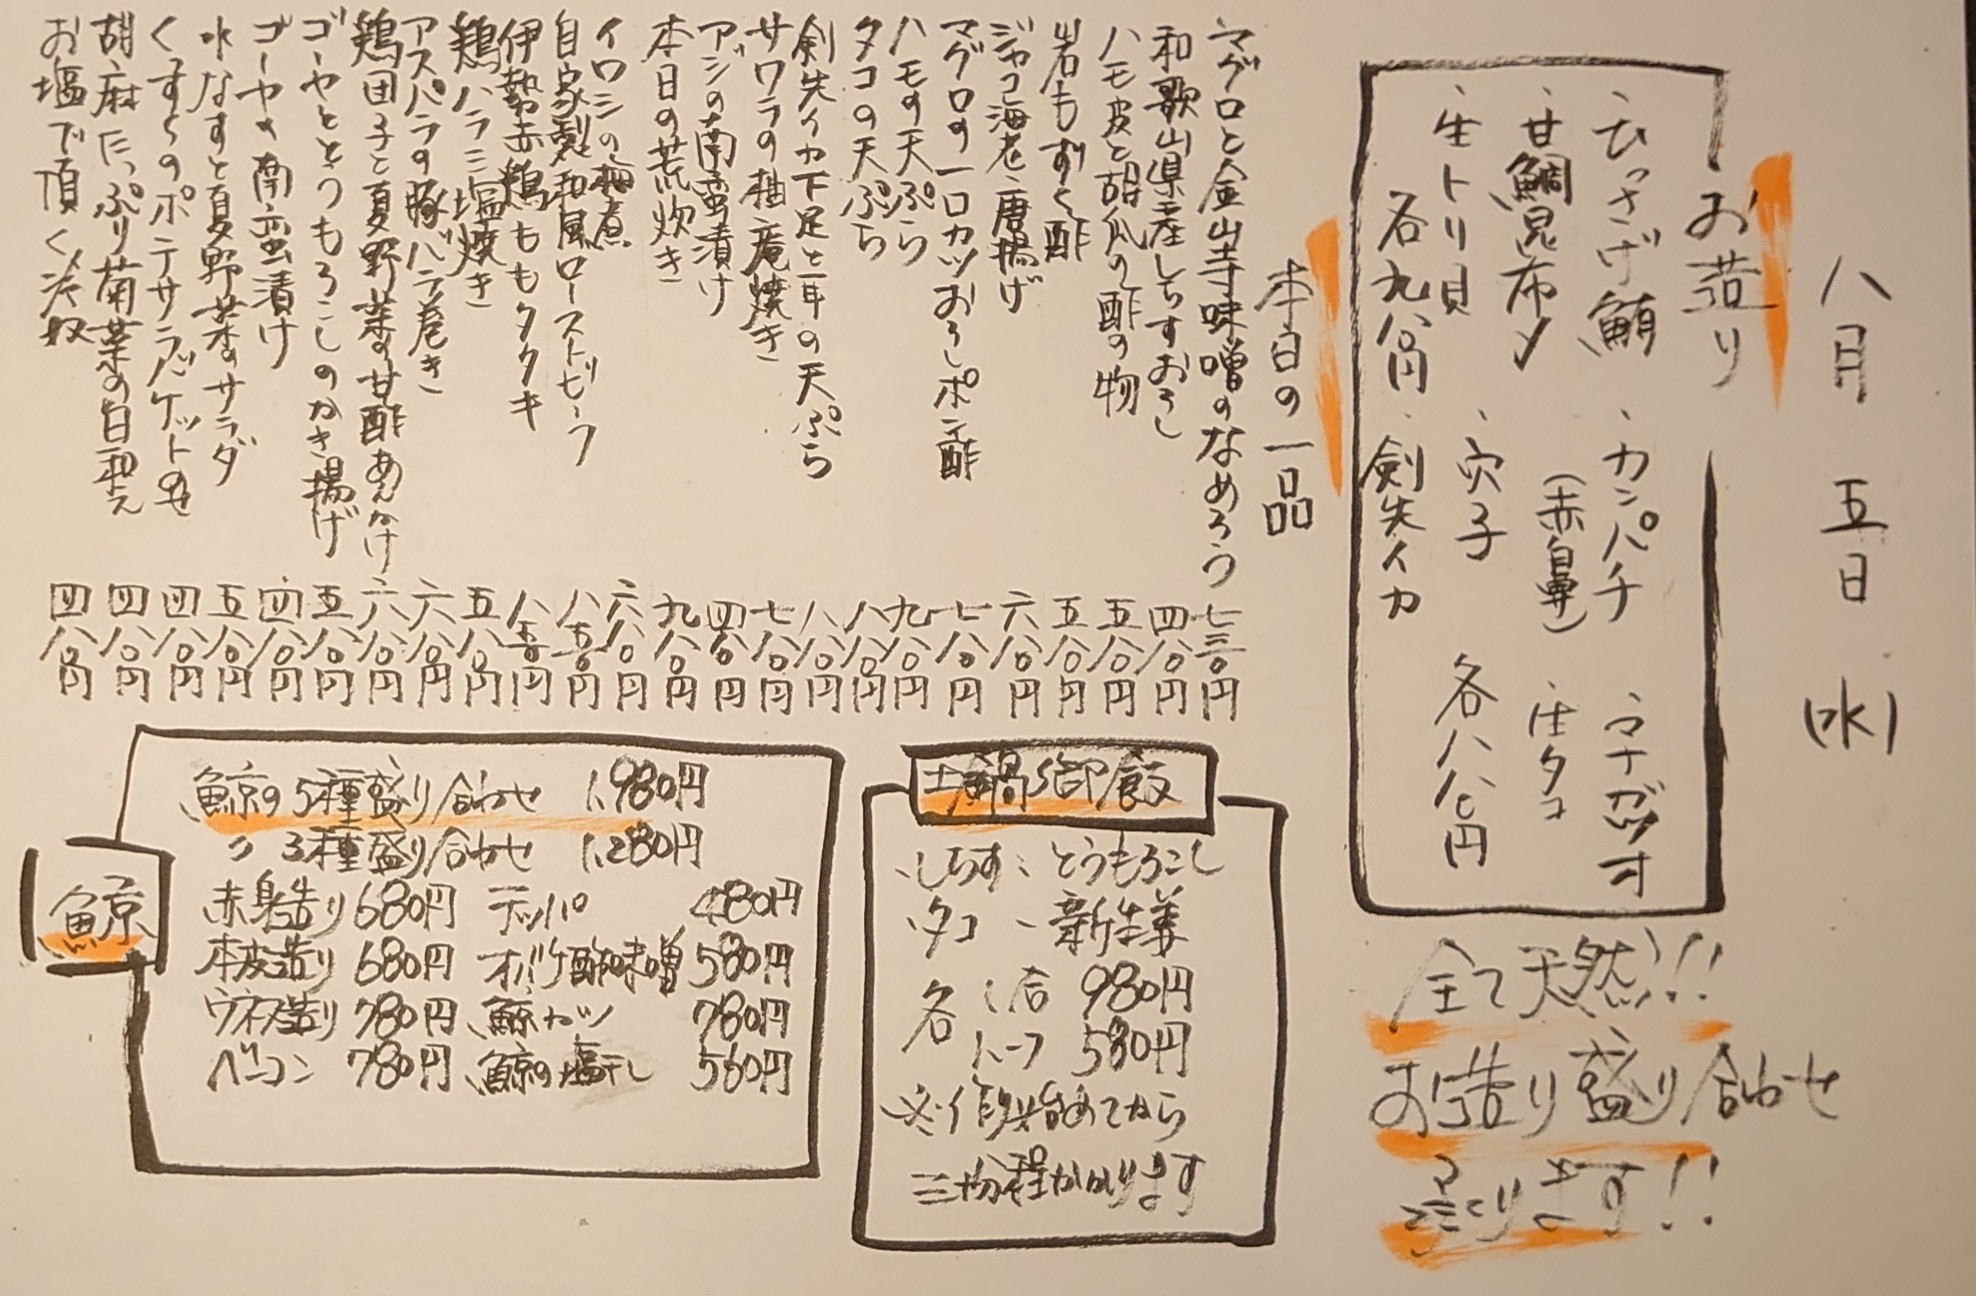 八月 五日 (水)
お造り
・ひっさげ鮪 ・カンパチ ・ウチワガツオ
・甘鯛昆布〆 (赤鼻) ・生タコ
・生トリ貝 ・穴子 各八八〇円
各九八〇円 ・剣先イカ
全て天然!!
お造り盛り合わせ
承ります!!
本日の一品
マグロと金山寺味噌のなめろう 七三〇円
和歌山県産しらすおろし 四八〇円
ハモ皮と胡瓜の酢の物 五八〇円
岩もずく酢 五八〇円
ジャコ海老唐揚げ 六八〇円
マグロの一口カツおろしポン酢 七八〇円
ハモの天ぷら 九八〇円
タコの天ぷら 八八〇円
剣先イカ下足と耳の天ぷら 八八〇円
サワラの柚庵焼き 七八〇円
アジの南蛮漬け 四八〇円
本日の荒炊き 九八〇円
イワシの梅煮 六八〇円
自家製和風ローストビーフ 八五〇円
伊勢赤鶏ももタタキ 八五〇円
鶏ハラミ塩焼き 五八〇円
アスパラの豚バラ巻き 六八〇円
鶏団子と夏野菜の甘酢あんかけ 六八〇円
ゴーヤととうもろこしのかき揚げ 五八〇円
ゴーヤの南蛮漬け 四八〇円
水なすと夏野菜のサラダ 五八〇円
くずしのポテサラバケットのせ 四八〇円
胡麻たっぷり菊菜の白和え 四八〇円
お塩で頂く冷奴 四八〇円
土鍋御飯
・しらす ・とうもろこし
・タコ ・新生姜
各 1合 980円
ハーフ 580円
※作り始めてから
三十分程かかります
鯨
鯨の5種盛り合わせ 1,980円
〃 3種盛り合わせ 1,280円
赤身造り 680円 テッパ 480円
本皮造り 680円 オバケ酢味噌 580円
ウネス造り 780円 鯨カツ 780円
ベーコン 780円 鯨の塩干し 560円